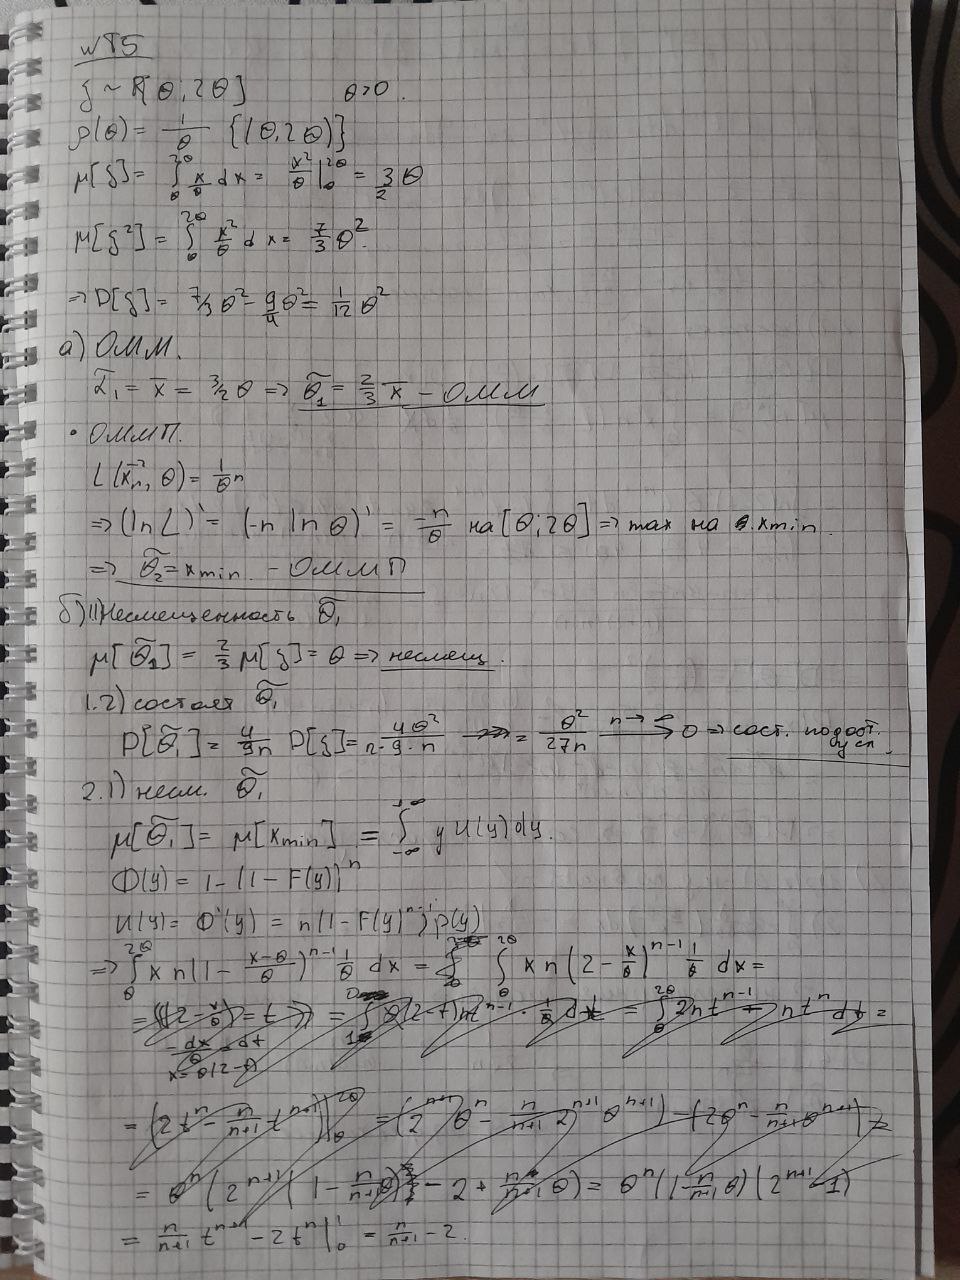 №T5
ξ ~ R[θ, 2θ] θ>0.
ρ(θ) = 1/θ {(θ, 2θ)}
μ[ξ] = ∫_θ^{2θ} x/θ dx = x²/θ |_θ^{2θ} = 3/2 θ
μ[ξ²] = ∫_θ^{2θ} x²/θ dx = 7/3 θ².
=> D[ξ] = 7/3 θ² - 9/4 θ² = 1/12 θ²
а) ОММ.
α̃₁ = x̄ = 3/2 θ => θ̃₁ = 2/3 x̄ - ОММ
• ОММП.
L(x⃗ₙ, θ) = 1/θⁿ
=> (ln L)' = (-n ln θ)' = -n/θ на [θ; 2θ] => max на θ. xmin.
=> θ̃₂ = xmin. - ОММП
б) 1) Несмещенность θ̃₁
μ[θ̃₁] = 2/3 μ[ξ] = θ => несмещ.
1.2) состоят θ̃₁
D[θ̃₁] = 4/9n D[ξ] = 4θ²/12·9·n = θ²/27n n→∞ 0 => сост. по дост. усл.
2.1) несм. θ̃₁
μ[θ̃₁] = μ[xmin] = ∫_{-∞}^{+∞} y u(y) dy.
Φ(y) = 1 - (1 - F(y))ⁿ
u(y) = Φ'(y) = n(1 - F(y)ⁿ⁻¹) ρ(y)
=> ∫_θ^{2θ} x n(1 - (x-θ)/θ)ⁿ⁻¹ 1/θ dx = ∫_θ^{2θ} x n (2 - x/θ)ⁿ⁻¹ 1/θ dx =
= ((2 - x/θ) = t)) = ∫_1^0 θ(2-t) n tⁿ⁻¹ · 1/θ dt = ∫_θ^{2θ} 2n tⁿ⁻¹ - n tⁿ dt =
-dx/θ = dt
x = θ(2-t)
= (2tⁿ - n/(n+1) tⁿ⁺¹)|_θ^{2θ} = (2ⁿ⁺¹ θⁿ - n/(n+1) 2ⁿ⁺¹ θⁿ⁺¹) - (2θⁿ - n/(n+1) θⁿ⁺¹) =
= θⁿ (2ⁿ⁺¹ (1 - n/(n+1) θ) - 2 + n/(n+1) θ) = θⁿ (1 - n/(n+1) θ)(2ⁿ⁺¹ 1)
= n/(n+1) tⁿ⁺¹ - 2tⁿ |_0^1 = n/(n+1) - 2.